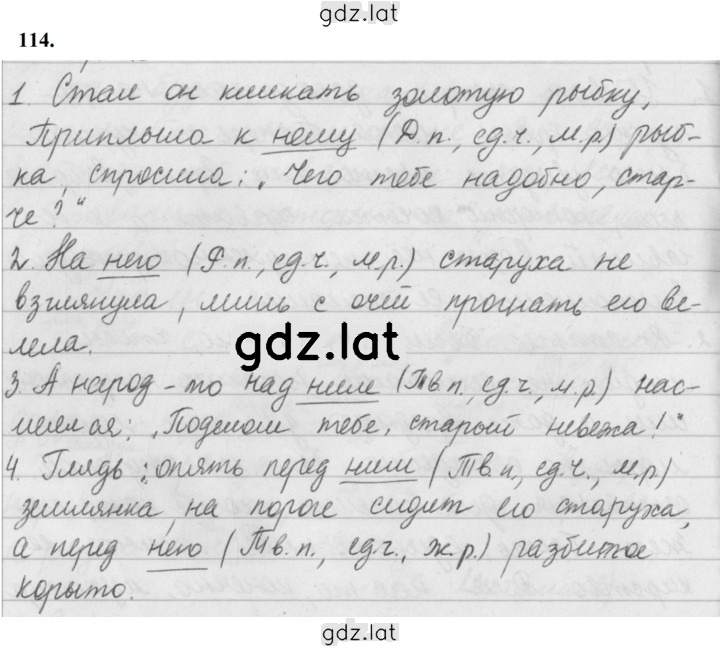 gdz.lat
114.
1. Стал он кликать золотую рыбку,
Приплыла к нему (Д.п., ед.ч., м.р.) рыб-
ка, спросила: „Чего тебе надобно, стар-
че?“
2. На него (Р.п., ед.ч., м.р.) старуха не
взглянула, лишь с очей прогнать его ве-
лела.
gdz.lat
3. А народ-то над ним (Тв.п., ед.ч., м.р.) нас-
меялся: „Поделом тебе, старый невежа!“
4. Глядь: опять перед ним (Тв.п., ед.ч., м.р.)
землянка, на пороге сидит его старуха,
а перед него (Тв.п., ед.ч., ж.р.) разбитое
корыто.
gdz.lat